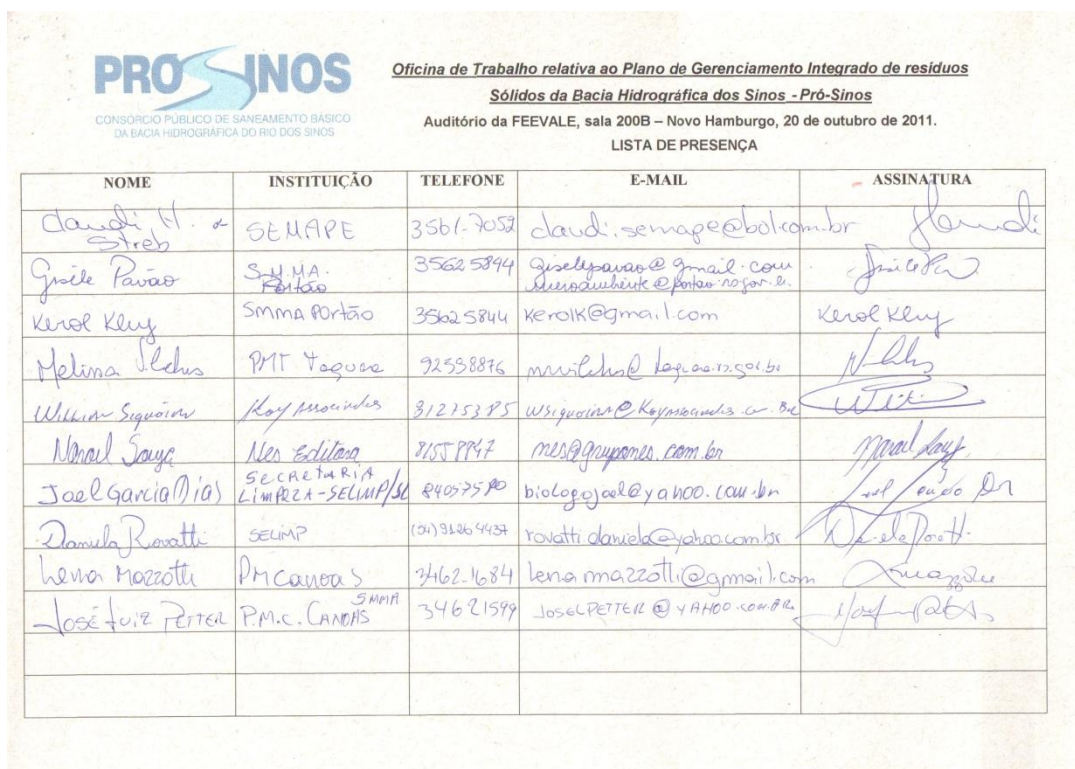 PRO SINOS
CONSÓRCIO PÚBLICO DE SANEAMENTO BÁSICO
DA BACIA HIDROGRÁFICA DO RIO DOS SINOS
Oficina de Trabalho relativa ao Plano de Gerenciamento Integrado de resíduos
Sólidos da Bacia Hidrográfica dos Sinos - Pró-Sinos
Auditório da FEEVALE, sala 200B – Novo Hamburgo, 20 de outubro de 2011.
LISTA DE PRESENÇA
NOME INSTITUIÇÃO TELEFONE E-MAIL ASSINATURA
Claudi H. de Streb SEMAPE 3561-7052 claudi.semape@bol.com.br
Gisele Pavão S.M.MA. Portão 35625894 giselepavao@gmail.com
Kerol Kluy SMMA Portão 35625844 kerolk@gmail.com Kerol Kluy
Melissa PMT Taquara 92558876
Koy Associados 31275385
Souza Nes Editora 81558847 nes@grupones.com.br
Joel Garcia Dias SECRETARIA LIMPEZA-SELIMP/SL 84057580 biologojoel@yahoo.com.br
Daniela Rovatti SELIMP (54) 91264437 rovatti.daniela@yahoo.com.br
Lena Mazzotti PMCanoas 3462-1684 lenamazzotti@gmail.com
José Luiz PETTER P.M.C. CANOAS SMMA 34621599 JOSELPETTER@YAHOO.COM.BR